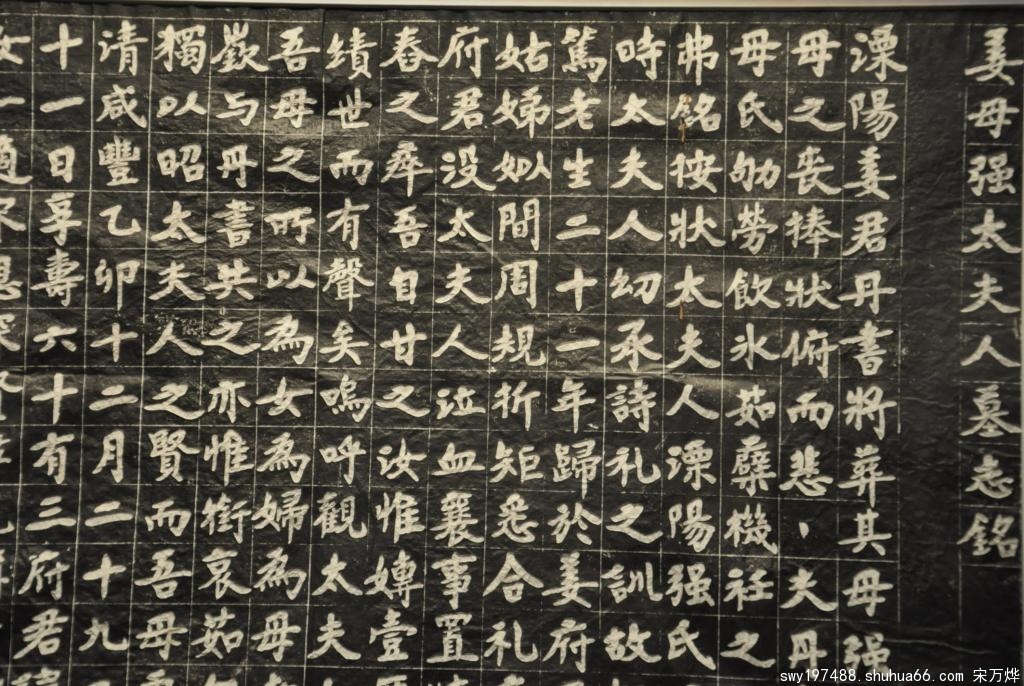 姜母强太夫人墓志銘
溧陽姜君丹書將葬其母强
母之喪捧狀俯而悲丶夫丹
母氏劬勞飲氷茹櫱機杼之
弗銘按狀太夫人溧陽强氏
時太夫人幼承詩礼之訓故
篤老生二十一年歸於姜府
姑娣姒間周規折矩悉合礼
府君没太夫人泣血襄事置
舂之彝吾自甘之汝惟竱壹
績世而有聲矣嗚呼觀太夫
吾母之所以為女為婦為母
歎与丹書共之亦惟銜哀茹
獨以昭太夫人之賢而吾母
清咸豐乙卯十二月二十九
十一日享壽六十有三府君
女一適
swy197488.shuhua66.com 宋万烨